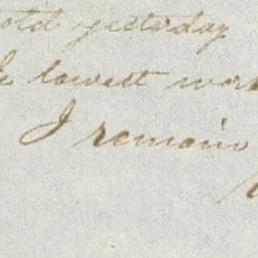 told yesterday
lowest
I remain